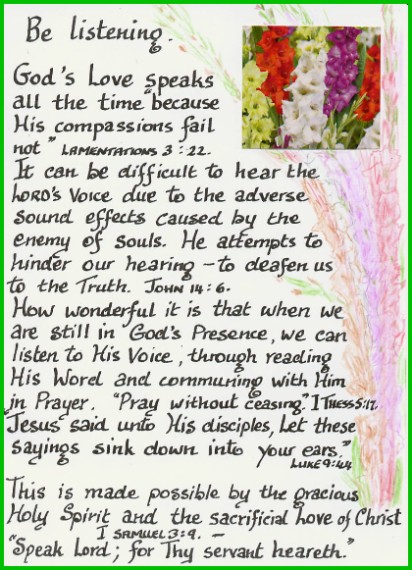 Be listening.
God's Love speaks
all the time "because
His compassions fail
not" LAMENTATIONS 3:22.
It can be difficult to hear the
LORD'S Voice due to the adverse
sound effects caused by the
enemy of souls. He attempts to
hinder our hearing - to deafen us
to the Truth. JOHN 14:6.
How wonderful it is that when we
are still in God's Presence, we can
listen to His Voice, through reading
His Word and communing with Him
in Prayer. "Pray without ceasing." I THESS 5:17.
Jesus said unto His disciples, Let these
sayings sink down into your ears."
LUKE 9:44
This is made possible by the gracious
Holy Spirit and the sacrificial Love of Christ
I SAMUEL 3:9. —
"Speak Lord; for Thy servant heareth."